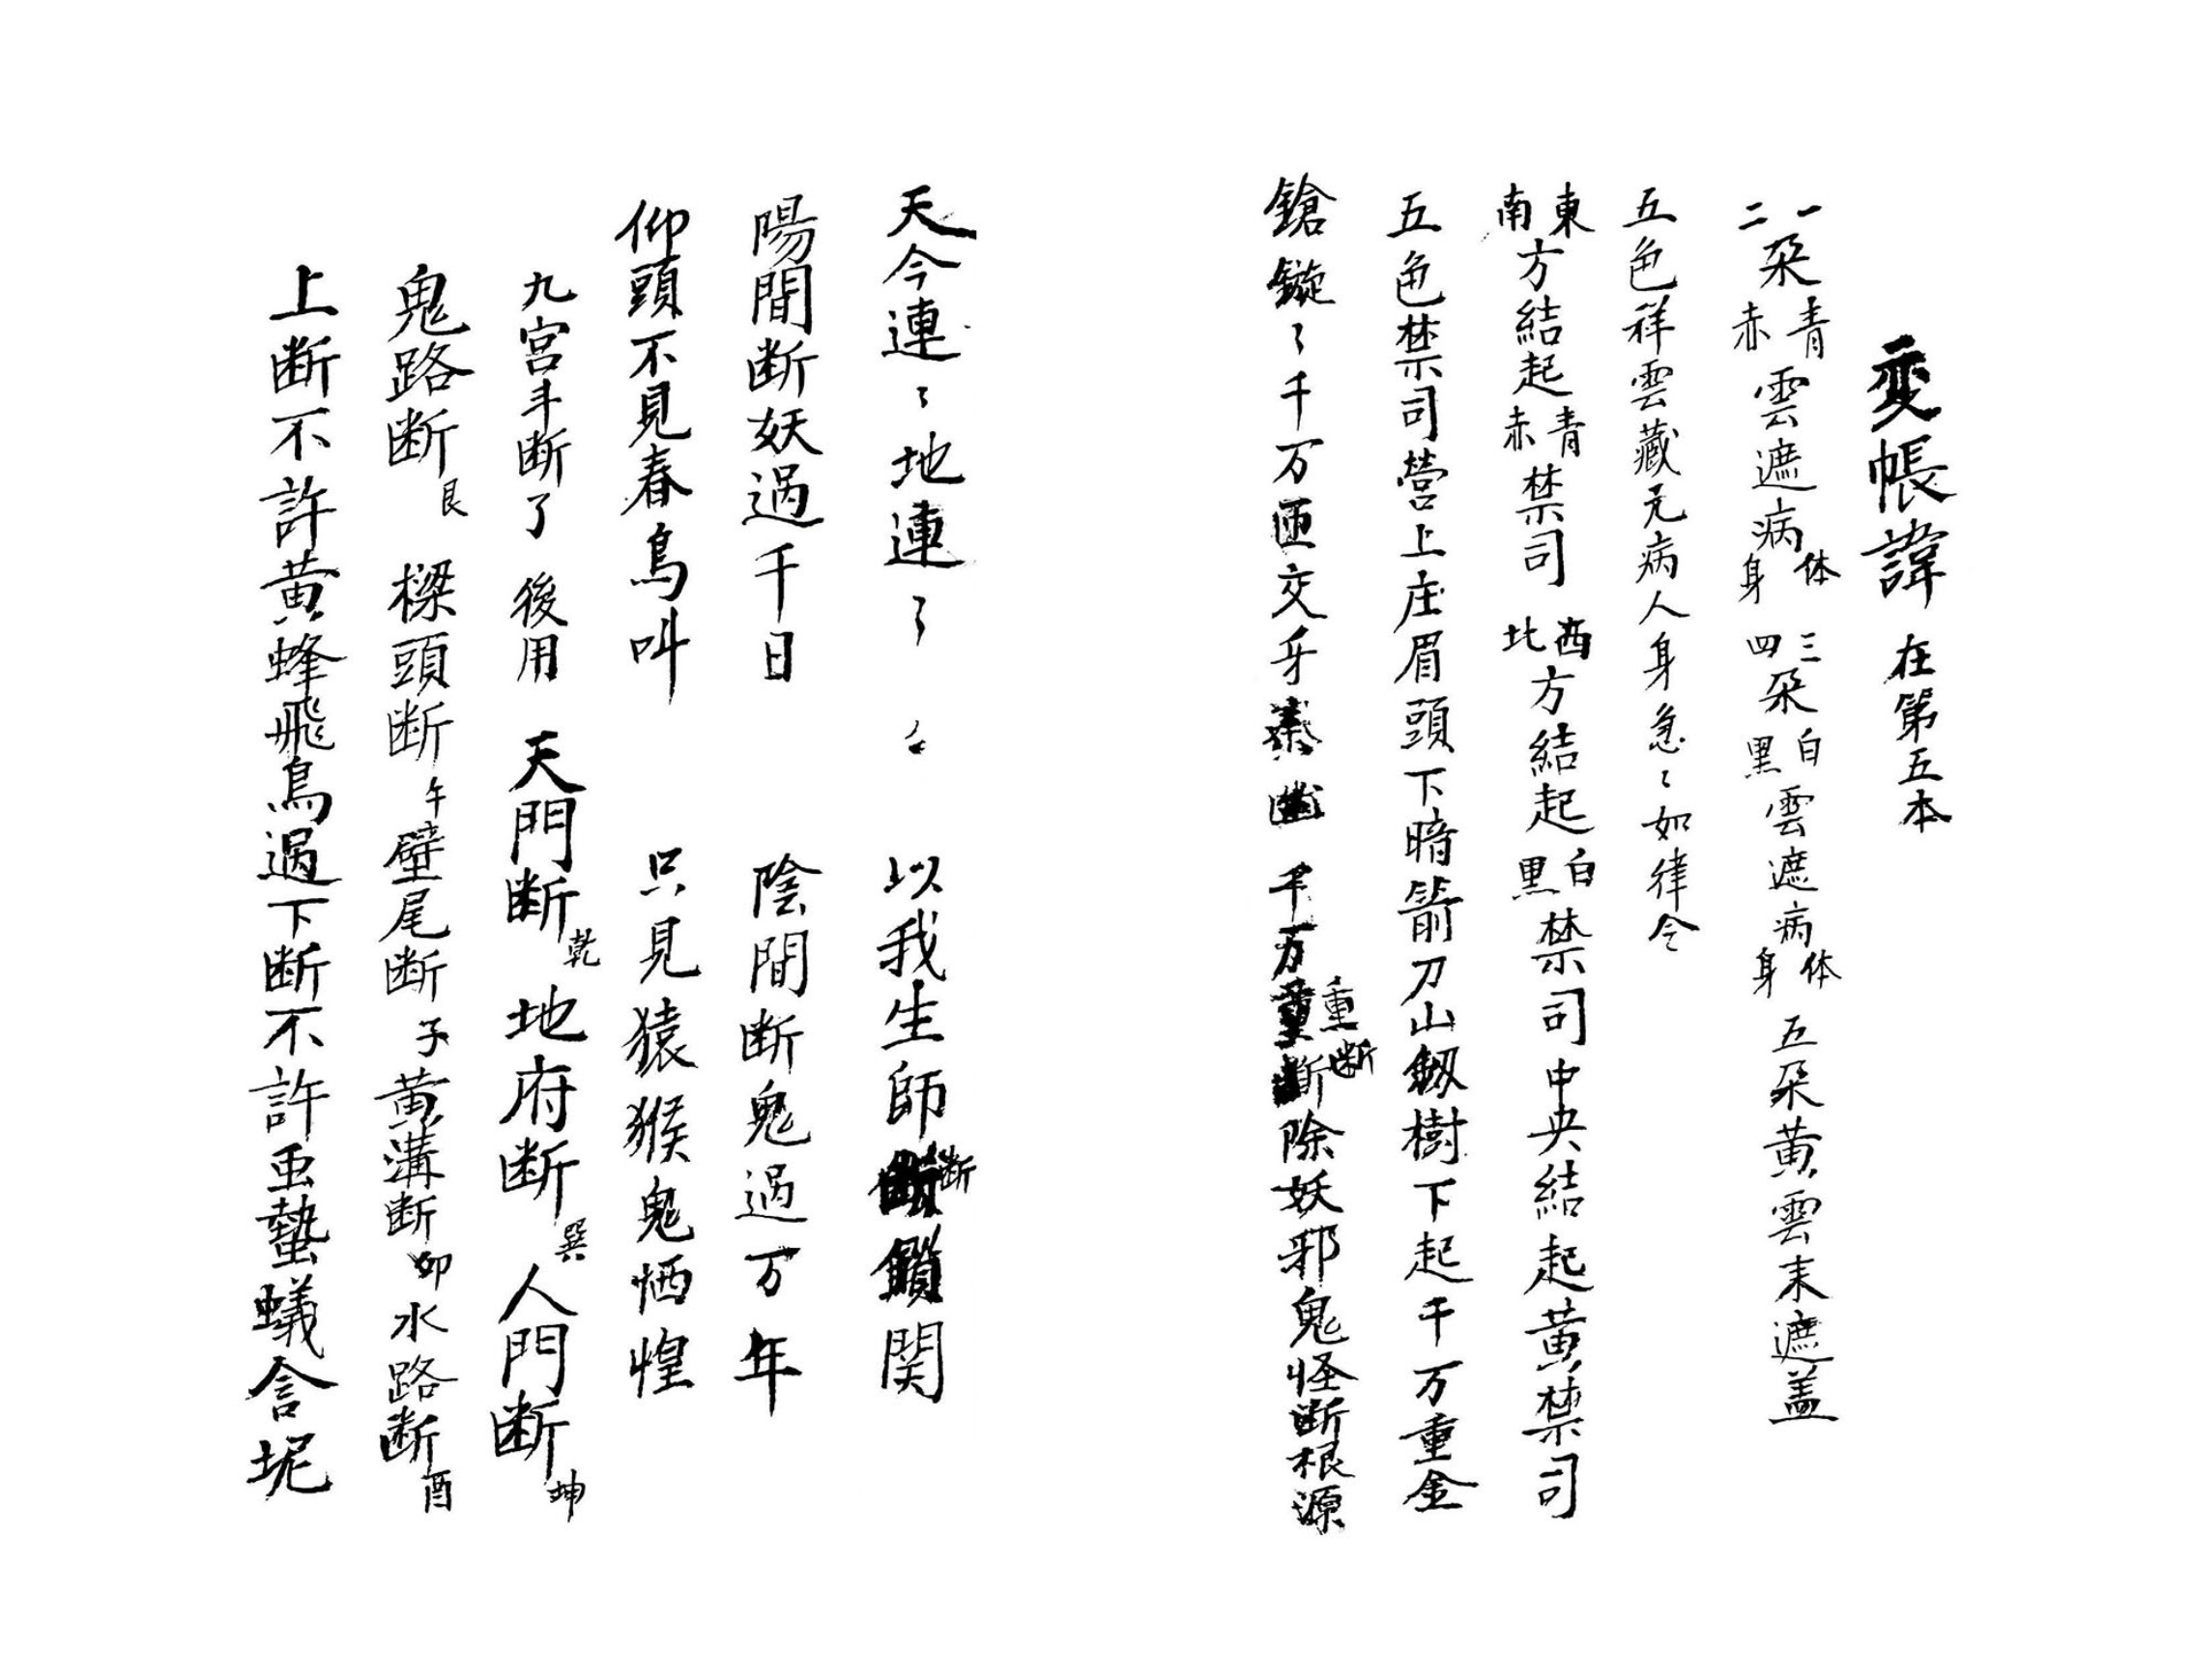 变帳諱 在第五本
一二朵青赤雲遮病体身 三四朵白黑雲遮病体身 五朵黄雲来遮盖
五色祥雲藏元病人身急〻如律令
東南方結起青赤禁司 西北方結起白黑禁司 中央結起黄禁司
五色禁司營上庄眉頭下暗箭刀山劔樹下起千万重金
鎗鏇〻千万匝交牙 千万重断除妖邪鬼怪断根源
天今連〻地連了 以我生師断鎖関
陽間断妖過千日 陰間断鬼過万年
仰頭不見春鳥叫 只見猿猴鬼恓惶
九宮斗断了 後用 天門断乾 地府断巽 人門断坤
鬼路断艮 樑頭断午 壁尾断子 黄溝断卯 水路断酉
上断不許黄蜂飛鳥過下断不許虫蟄蟻含坭